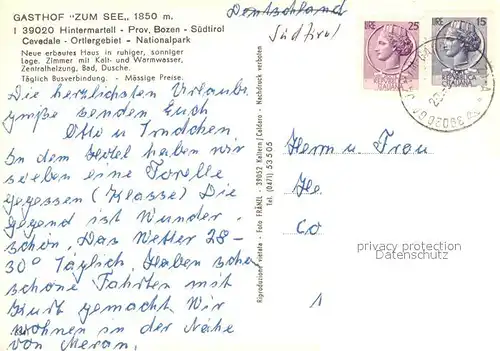 GASTHOF "ZUM SEE„, 1850 m.
I 39020 Hintermartell - Prov. Bozen - Südtirol
Cevedale - Ortlergebiet - Nationalpark
Neue erbautes Haus in ruhiger, sonniger
Lage. Zimmer mit Kalt- und Warmwasser,
Zentralheizung, Bad, Dusche.
Täglich Busverbindung. - Mässige Preise.
Die herzlichsten Urlaubs
grüße senden Euch
Otto u Trudchen.
In dem Hotel haben wir
soeben eine Forelle
gegessen (Klasse) Die
Gegend ist Wunder
schön. Das Wetter 28-
30° Täglich. Haben sehr
schöne Fahrten mit
Kurt gemacht. Wir
wohnen in der Nähe
von Meran.
Riproduzione vietata - Foto FRÄNZL - 39052 Kaltern/Caldaro - Nachdruck verboten
Tel. (0471) 53505
Deutschland
Südtirol
LIRE 25
LIRE 15
39020
Herrn u Frau
He
Co
1
privacy protection
Datenschutz